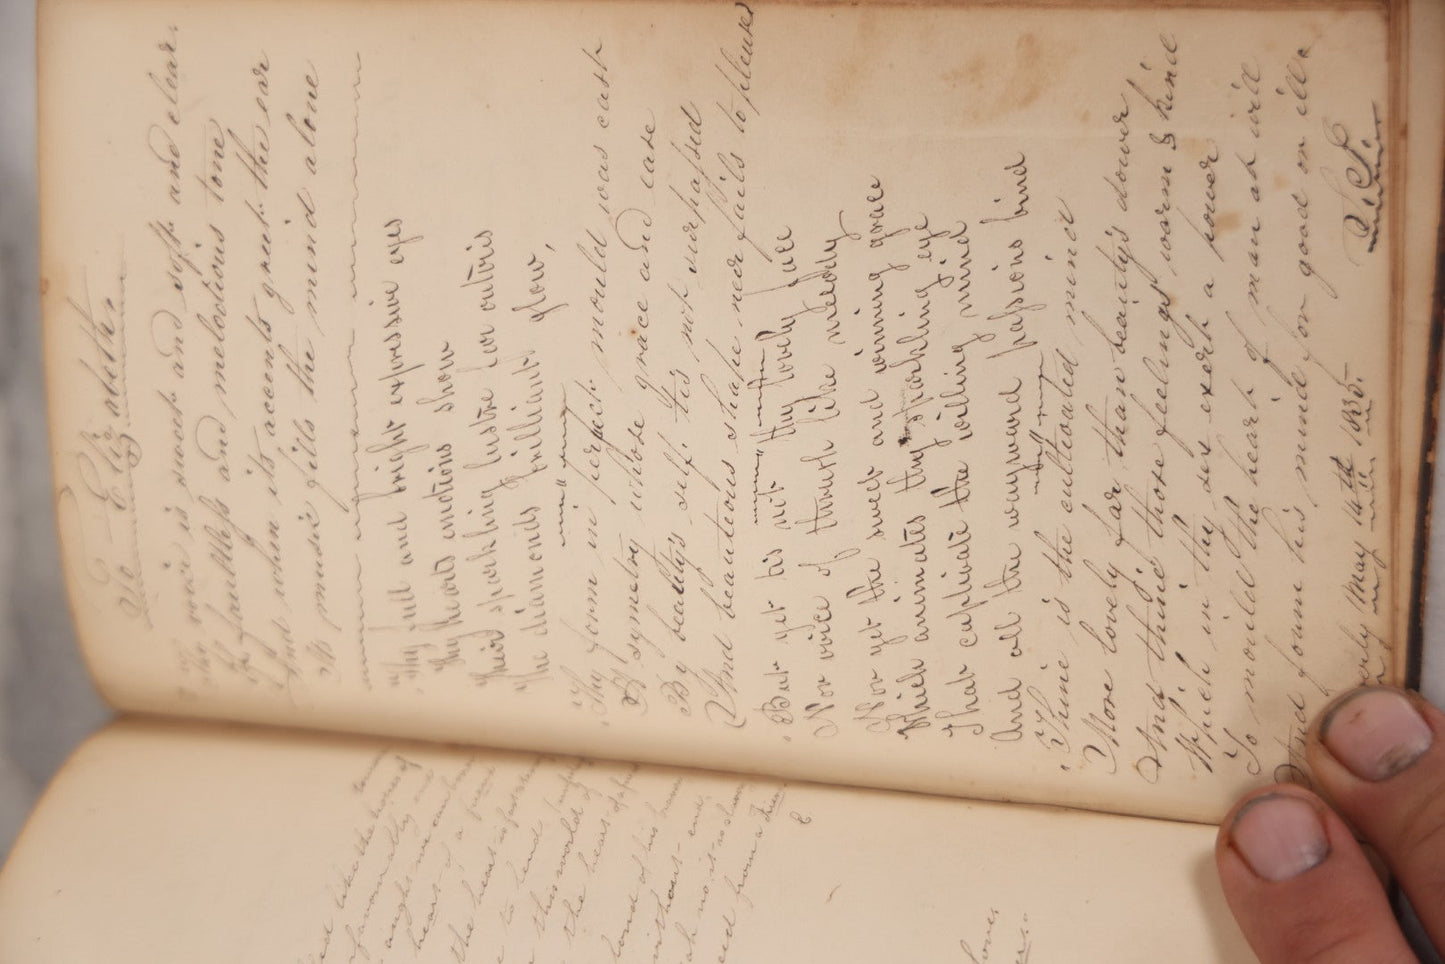 To Elizabeth.
Thy voice is sweet and soft and clear.
Of faultless and melodious tone
And when its accents greet the ear
Its music fills the mind alone
Thy full and bright expressive eyes
Thy hearts emotions show
Their sparkling lustre far outvis
The diamonds brilliant glow,
Thy form in perfect mould was cast
Of symetry whose grace and ease
By beauty's self, tis not surpassed
And beauteous shape near fails to please
But yet tis not thy lovely face
Nor voice of thrush like melody
Nor yet the sweet and winning grace
Which animates thy sparkling eye
That captivate the willing mind
And all the wayward passions bind
Thine is the cultivated mind
More lovely far than beauty's dower
And thine those feelings warm & kind
Which in thy sex exert a power
To mould the heart of man at will
And form his mind for good or ill.
May 14th 1835.
like the
heart
the heart is
to lend
this world
the heart
of his
without end
from a
E